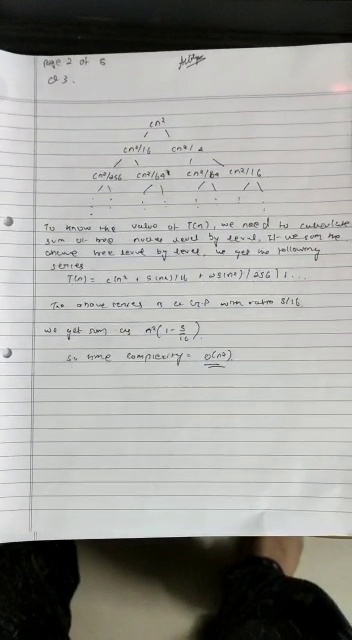 Page 2 of 5
Q 3.
cn²
cn²/16 cn²/4
cn²/256 cn²/64 cn²/64 cn²/16
To know the value of T(n), we need to calculate
sum of tree nodes level by level. If we sum the
above tree level by level, we get the following
series
T(n) = c(n² + 5(n²)/16 + 25(n²)/256) + ...
The above series is a G.P with ratio 5/16.
we get sum as n²(1 - 5/16)
So time complexity = O(n²)